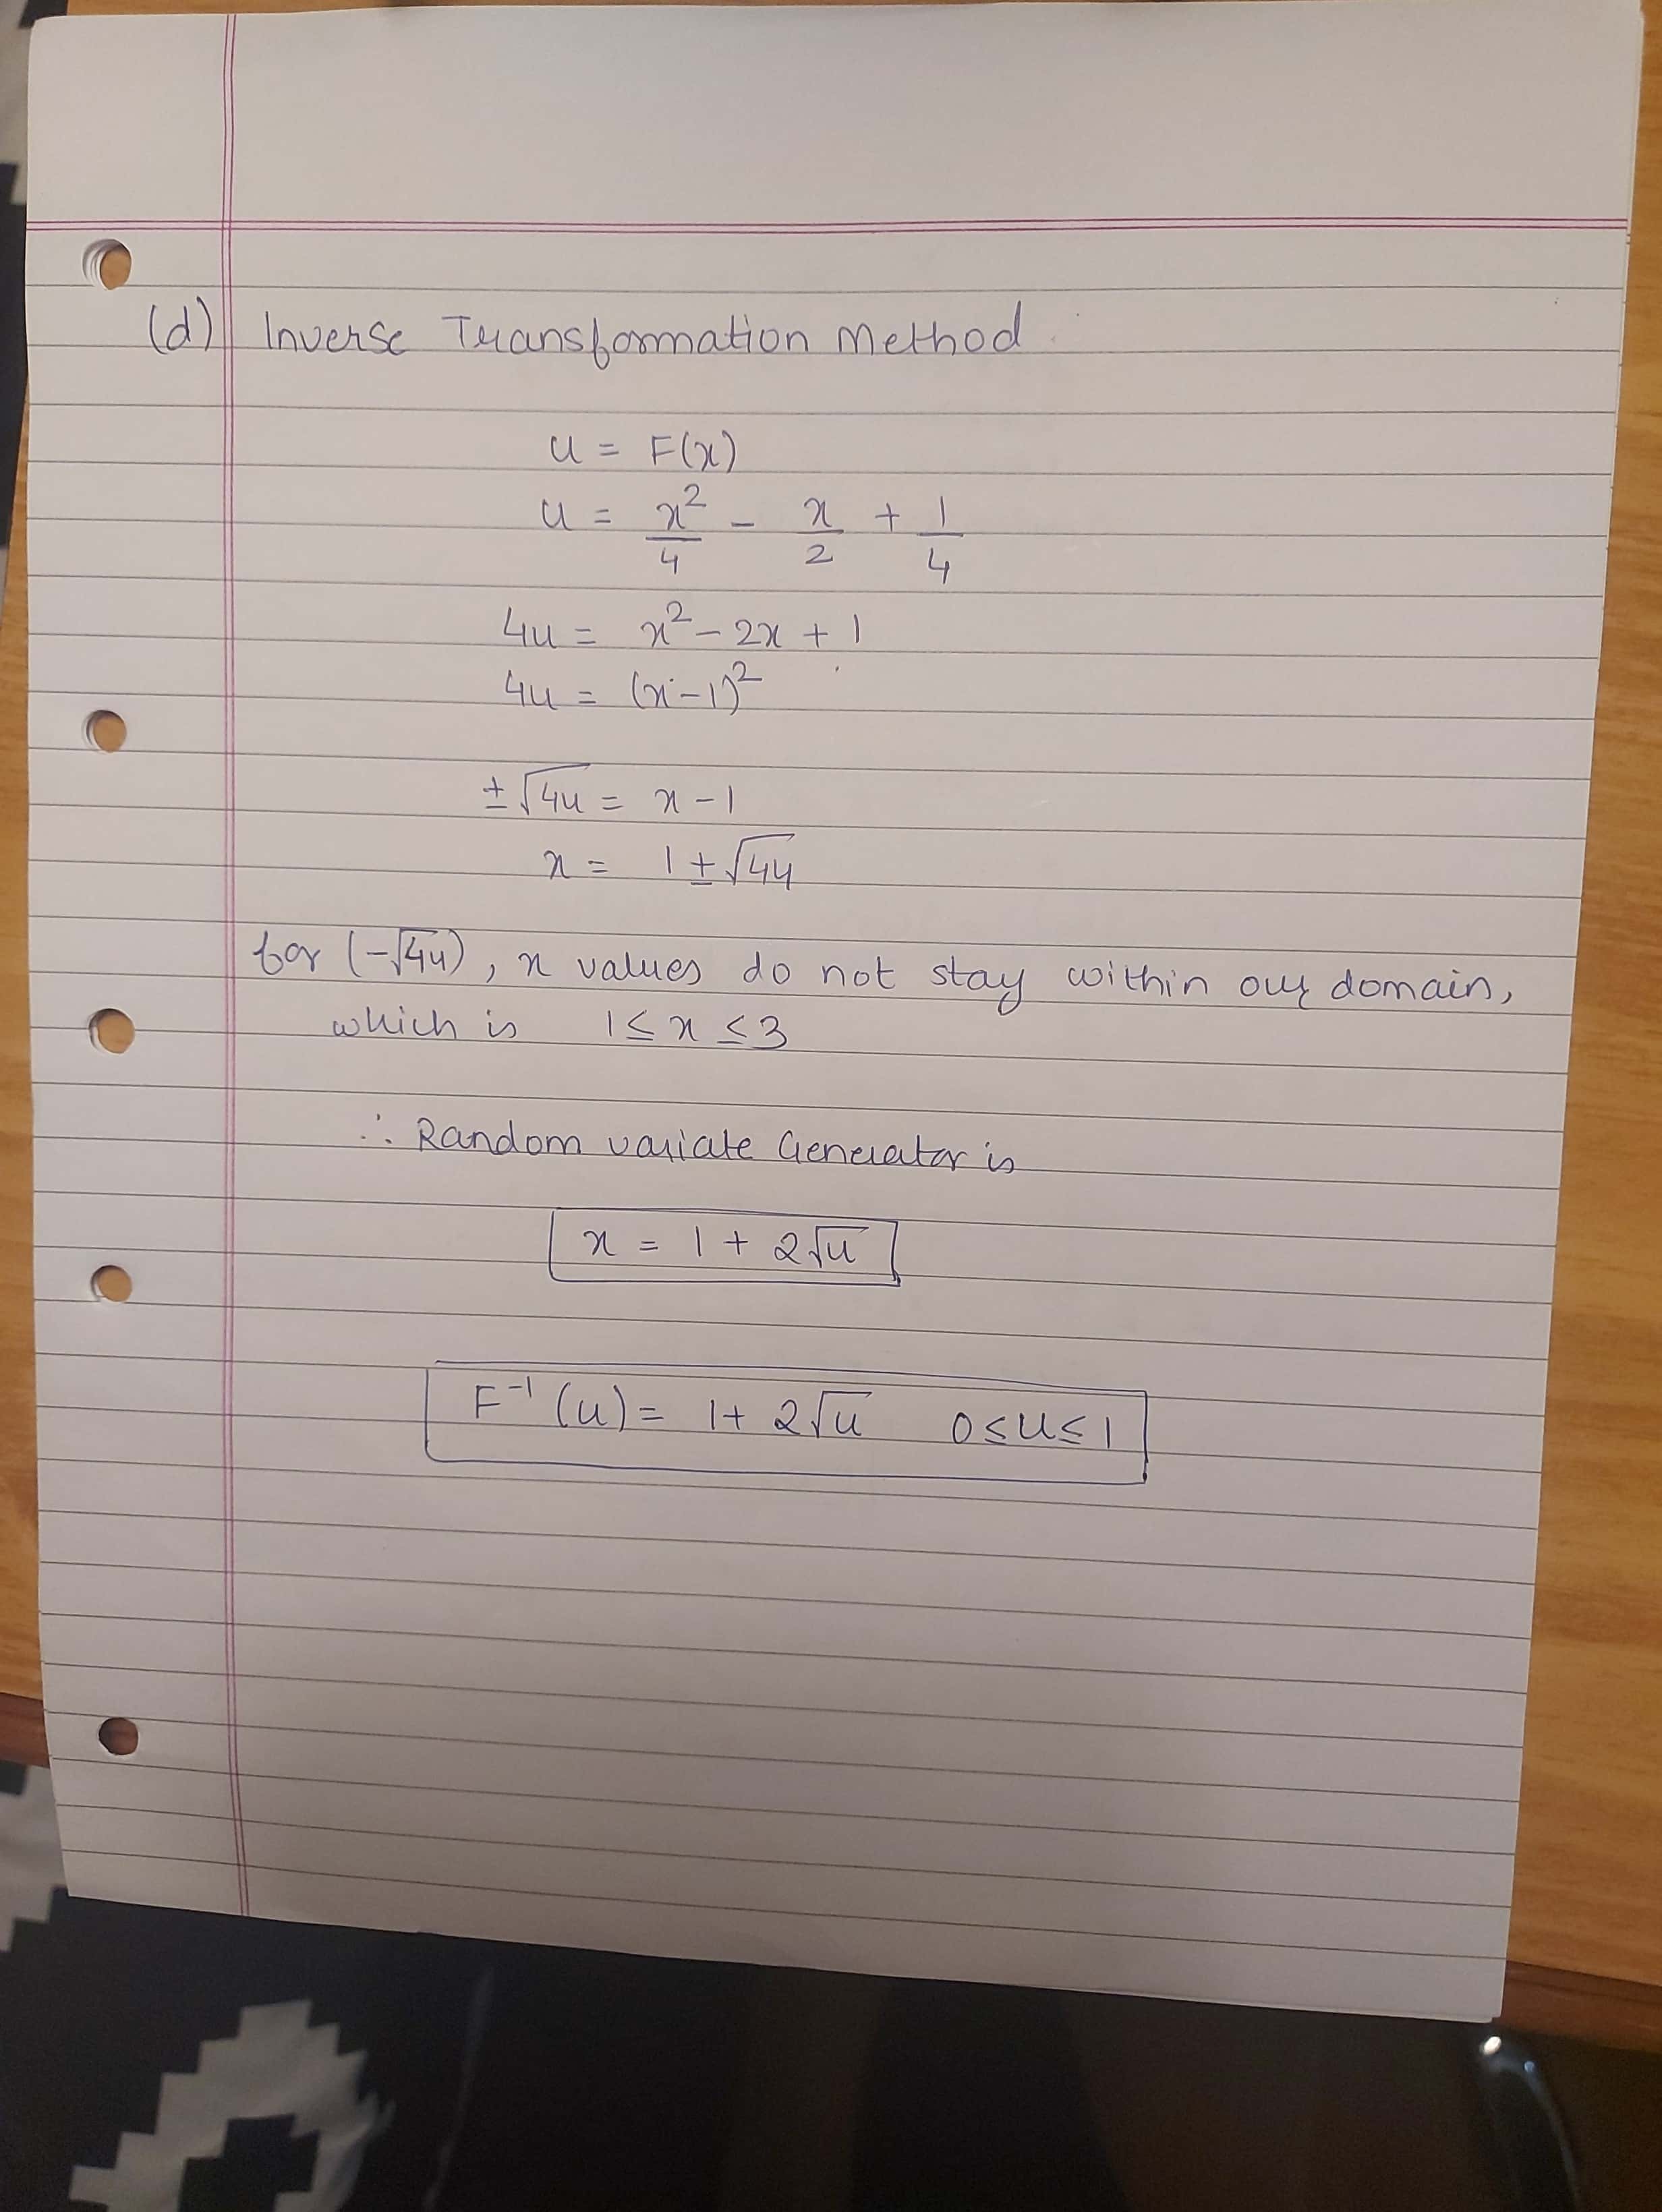 (d) Inverse Transformation Method
u = F(x)
u = x²/4 - x/2 + 1/4
4u = x² - 2x + 1
4u = (x - 1)²
± √4u = x - 1
x = 1 ± √4u
for (-√4u), x values do not stay within our domain,
which is 1 ≤ x ≤ 3
∴ Random variate Generator is
x = 1 + 2√u
F⁻¹(u) = 1 + 2√u 0 ≤ u ≤ 1